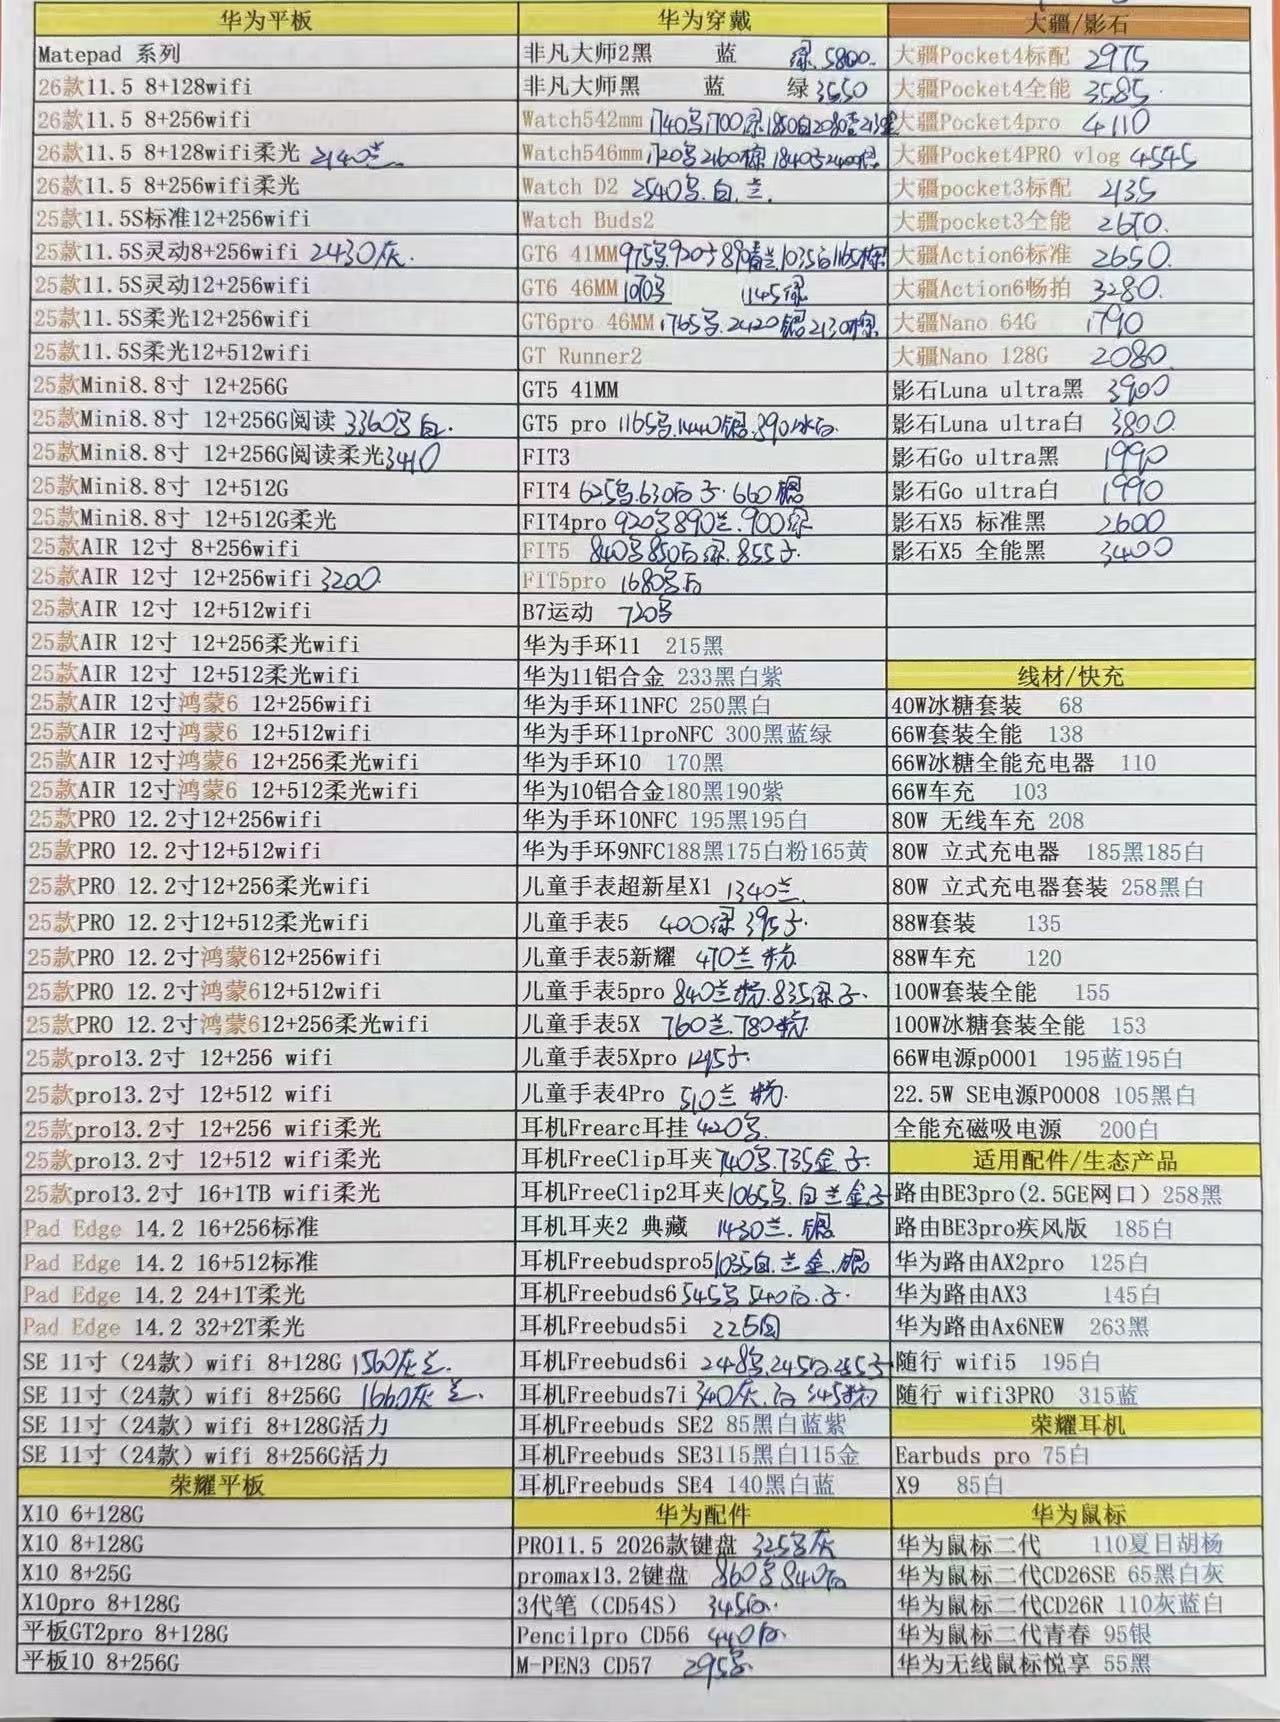 华为平板
Matepad 系列
26款11.5 8+128wifi
26款11.5 8+256wifi
26款11.5 8+128wifi柔光 2140兰
26款11.5 8+256wifi柔光
25款11.5S标准12+256wifi
25款11.5S灵动8+256wifi 2430灰.
25款11.5S灵动12+256wifi
25款11.5S柔光12+256wifi
25款11.5S柔光12+512wifi
25款Mini8.8寸 12+256G
25款Mini8.8寸 12+256G阅读 3360 白.
25款Mini8.8寸 12+256G阅读柔光3410
25款Mini8.8寸 12+512G
25款Mini8.8寸 12+512G柔光
25款AIR 12寸 8+256wifi
25款AIR 12寸 12+256wifi 3200.
25款AIR 12寸 12+512wifi
25款AIR 12寸 12+256柔光wifi
25款AIR 12寸 12+512柔光wifi
25款AIR 12寸鸿蒙6 12+256wifi
25款AIR 12寸鸿蒙6 12+512wifi
25款AIR 12寸鸿蒙6 12+256柔光wifi
25款AIR 12寸鸿蒙6 12+512柔光wifi
25款PRO 12.2寸12+256wifi
25款PRO 12.2寸12+512wifi
25款PRO 12.2寸12+256柔光wifi
25款PRO 12.2寸12+512柔光wifi
25款PRO 12.2寸鸿蒙612+256wifi
25款PRO 12.2寸鸿蒙612+512wifi
25款PRO 12.2寸鸿蒙612+256柔光wifi
25款pro13.2寸 12+256 wifi
25款pro13.2寸 12+512 wifi
25款pro13.2寸 12+256 wifi柔光
25款pro13.2寸 12+512 wifi柔光
25款pro13.2寸 16+1TB wifi柔光
Pad Edge 14.2 16+256标准
Pad Edge 14.2 16+512标准
Pad Edge 14.2 24+1T柔光
Pad Edge 14.2 32+2T柔光
SE 11寸（24款）wifi 8+128G 1560灰兰.
SE 11寸（24款）wifi 8+256G 1660灰兰.
SE 11寸（24款）wifi 8+128G活力
SE 11寸（24款）wifi 8+256G活力
荣耀平板
X10 6+128G
X10 8+128G
X10 8+25G
X10pro 8+128G
平板GT2pro 8+128G
平板10 8+256G
华为穿戴
非凡大师2黑 蓝 绿.5800.
非凡大师黑 蓝 绿3550
Watch542mm
Watch546mm
Watch D2 2540 .白.兰.
Watch Buds2
GT6 41MM
GT6 46MM 1145绿
GT6pro 46MM
GT Runner2
GT5 41MM
GT5 pro
FIT3
FIT4
FIT4pro 920 890兰.900绿
FIT5 840 850白绿.855
FIT5pro 1680 白
B7运动 720
华为手环11 215黑
华为11铝合金 233黑白紫
华为手环11NFC 250黑白
华为手环11proNFC 300黑蓝绿
华为手环10 170黑
华为10铝合金180黑190紫
华为手环10NFC 195黑195白
华为手环9NFC188黑175白粉165黄
儿童手表超新星X1 1340兰.
儿童手表5 400绿 395
儿童手表5新耀 470兰 粉.
儿童手表5pro 840兰粉.835绿
儿童手表5X 760兰.780粉
儿童手表5Xpro
儿童手表4Pro 510兰 粉.
耳机Frearc耳挂 420
耳机FreeClip耳夹 740 .735金
耳机FreeClip2耳夹 1065 .白兰金
耳机耳夹2 典藏 1430兰.银
耳机Freebudspro5 1035白.兰金.银
耳机Freebuds6 545 540白.
耳机Freebuds5i 225
耳机Freebuds6i
耳机Freebuds7i 340灰.白 345粉
耳机Freebuds SE2 85黑白蓝紫
耳机Freebuds SE3115黑白115金
耳机Freebuds SE4 140黑白蓝
华为配件
PRO11.5 2026款键盘 325 灰
promax13.2键盘 860 840白
3代笔（CD54S） 345白.
Pencilpro CD56 440白.
M-PEN3 CD57 295
大疆/影石
大疆Pocket4标配 2975
大疆Pocket4全能 3585.
大疆Pocket4pro 4110
大疆Pocket4PRO vlog 4545
大疆pocket3标配 2135
大疆pocket3全能
大疆Action6标准 2650.
大疆Action6畅拍 3280.
大疆Nano 64G 1790
大疆Nano 128G 2080.
影石Luna ultra黑 3900
影石Luna ultra白 3800.
影石Go ultra黑 1990
影石Go ultra白 1990
影石X5 标准黑 2600
影石X5 全能黑 3400
线材/快充
40W冰糖套装 68
66W套装全能 138
66W冰糖全能充电器 110
66W车充 103
80W 无线车充 208
80W 立式充电器 185黑185白
80W 立式充电器套装 258黑白
88W套装 135
88W车充 120
100W套装全能 155
100W冰糖套装全能 153
66W电源p0001 195蓝195白
22.5W SE电源P0008 105黑白
全能充磁吸电源 200白
适用配件/生态产品
路由BE3pro(2.5GE网口）258黑
路由BE3pro疾风版 185白
华为路由AX2pro 125白
华为路由AX3 145白
华为路由Ax6NEW 263黑
随行 wifi5 195白
随行 wifi3PRO 315蓝
荣耀耳机
Earbuds pro 75白
X9 85白
华为鼠标
华为鼠标二代 110夏日胡杨
华为鼠标二代CD26SE 65黑白灰
华为鼠标二代CD26R 110灰蓝白
华为鼠标二代青春 95银
华为无线鼠标悦享 55黑